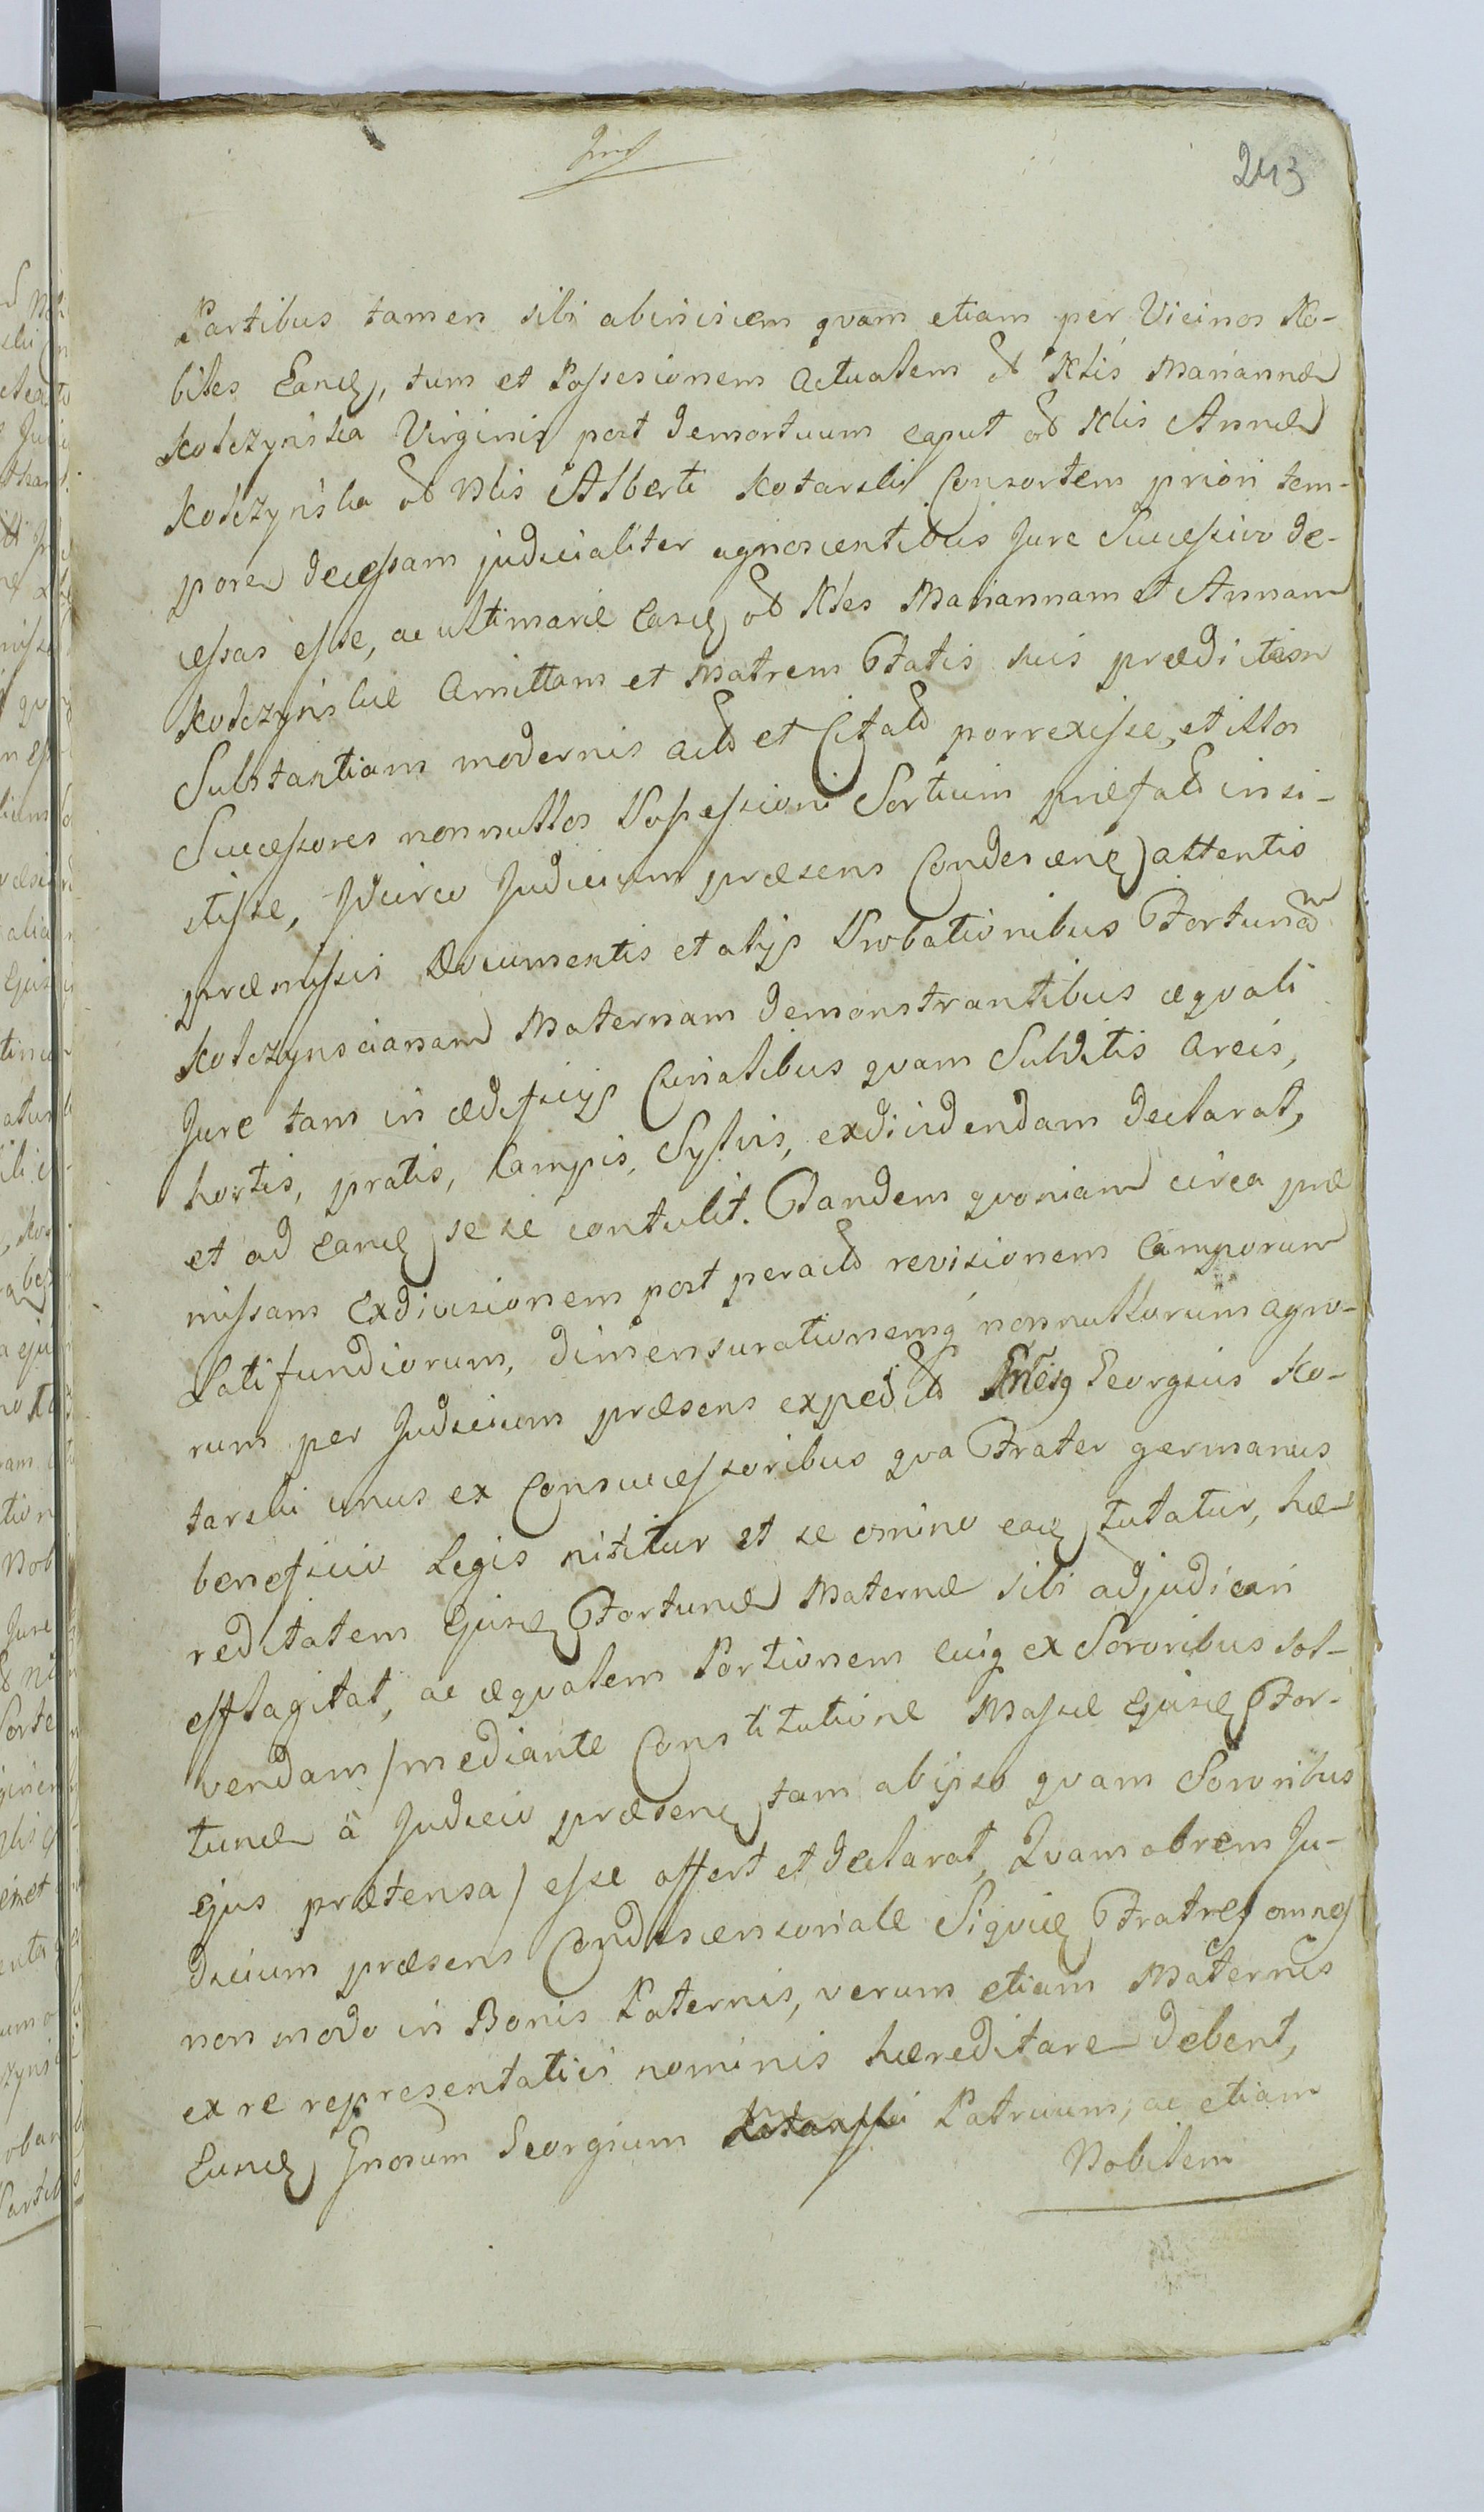 243
Partibus tamen sibi abinicem qvam etiam per Vicinos No-
biles Eand, tum et Possesionem Actualem od Nlis Mariannæ
Kotczyńska Virginis post demortuum caput od Nlis Annæ
Kotczyńska od Nlis Alberti Kotarski Consortem priori tem-
pore decessam judicialiter agnoscentibus Jure Successivo de-
cessas esse, ac ultimarie Easd od Nles Mariannam et Annam
Kotczyńskie Amittam et Matrem Fratis suis prædictam
Substantiam modernis Actb et Citatb porrexisse, et illos
Successores nonnullos Possessioni Sortium præfatb insi-
stisse, Idcirco Judicium præsens Condescens attentis
præmissis Documentis et alijs Probationibus Fortunam
Kotczynscianam Maternam demonstrantibus æqvali
Jure tam in ædificijs Curialibus qvam Subditis Areis,
hortis, pratis, Campis, Sylvis, exdividendam declarat,
et ad Eand se se contulit. Tandem qvoniam circa præ
missam Exdivisionem post peractb revisionem Camporum
Latifundiorum, dimensurationemq nonnullorum agro-
rum per Judicium præsens expeditb Georgius Ko-
tarski unus ex Consuccessoribus qva Frater germanus
beneficio Legis nititur et se omino ead tutatur, hæ
reditatem Ejusd Fortunæ Maternæ sibi adjudicari
efflagitat, ac æqvalem Portionem cuiq ex Sororibus sol-
vendam /mediante Constitutione Massæ Ejusd For-
tunæ à Judicio præsens tam abipso qvam Sororibus
ejus prætensa/ esse offert et declarat, Qvamobrem Ju-
dicium præsens Condescensoriale Siqvid Fratres omnes
non modo in Bonis Paternis, verum etiam Maternis
ex re representatiis nominis hæreditare debent,
Eund Gnosum Georgium Kotarski Patruum, ac etiam
Nobilem